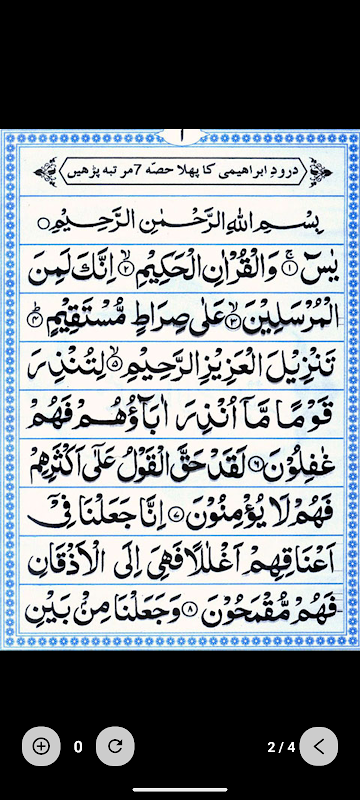 ١
درودِ ابراھیمی کا پہلا حصّہ 7مرتبہ پڑھیں
بِسْمِ اللهِ الرَّحْمٰنِ الرَّحِيْمِ
يٰسٓ ۚ﴿١﴾ وَالْقُرْاٰنِ الْحَكِيْمِ ۙ﴿٢﴾ اِنَّكَ لَمِنَ
الْمُرْسَلِيْنَ ۙ﴿٣﴾ عَلٰى صِرَاطٍ مُّسْتَقِيْمٍ ؕ﴿٤﴾
تَنْزِيْلَ الْعَزِيْزِ الرَّحِيْمِ ۙ﴿٥﴾ لِتُنْذِرَ
قَوْمًا مَّاۤ اُنْذِرَ اٰبَآؤُهُمْ فَهُمْ
غٰفِلُوْنَ ﴿٦﴾ لَقَدْ حَقَّ الْقَوْلُ عَلٰٓى اَكْثَرِهِمْ
فَهُمْ لَا يُؤْمِنُوْنَ ﴿٧﴾ اِنَّا جَعَلْنَا فِيْٓ
اَعْنَاقِهِمْ اَغْلٰلًا فَهِيَ اِلَى الْاَذْقَانِ
فَهُمْ مُّقْمَحُوْنَ ﴿٨﴾ وَجَعَلْنَا مِنْۢ بَيْنِ
0 2/4